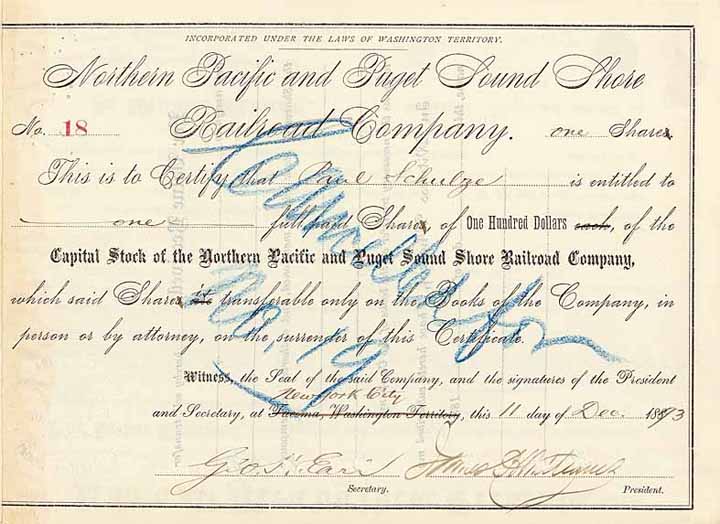 INCORPORATED UNDER THE LAWS OF WASHINGTON TERRITORY.
Northern Pacific and Puget Sound Shore
No. 18 Railroad Company. one Shares
This is to Certify that Paul Schulze is entitled to
one full paid Shares, of One Hundred Dollars each, of the
Capital Stock of the Northern Pacific and Puget Sound Shore Railroad Company,
which said Shares are transferable only on the Books of the Company, in
person or by attorney, on the surrender of this Certificate.
Cancelled for
No. 19
Witness, the Seal of the said Company, and the signatures of the President
New York City
and Secretary, at Tacoma, Washington Territory, this 11 day of Dec. 1893
Geo. H. Earl James
Secretary. President.